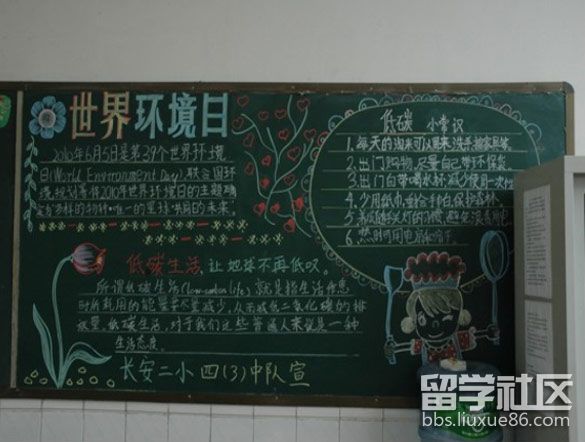 世界环境日
2010年6月5日是第39个世界环境
日(World Environment Day),联合国环
境规划署将2010年世界环境日的主题确
定为"多样的物种·唯一的星球·共同的未来"。
低碳 小常识
1.每天的淘米水可以用来洗手擦家具等。
2.出门购物,尽量自己带环保袋
3.出门自带喝水杯,减少使用一次性
4.少用纸巾,重拾手帕,保护森林。
5.养成随手关灯的习惯,避免浪费用电
6.
低碳生活,让地球不再低叹。
所谓低碳生活(low-carbon life),就是指生活作息
时所耗用的能量要尽量减少,从而减低二氧化碳的排
放量。低碳生活,对于我们这些普通人来说是一种
生活态度
长安二小四(3)中队宣
留学社区
bbs.liuxue86.com